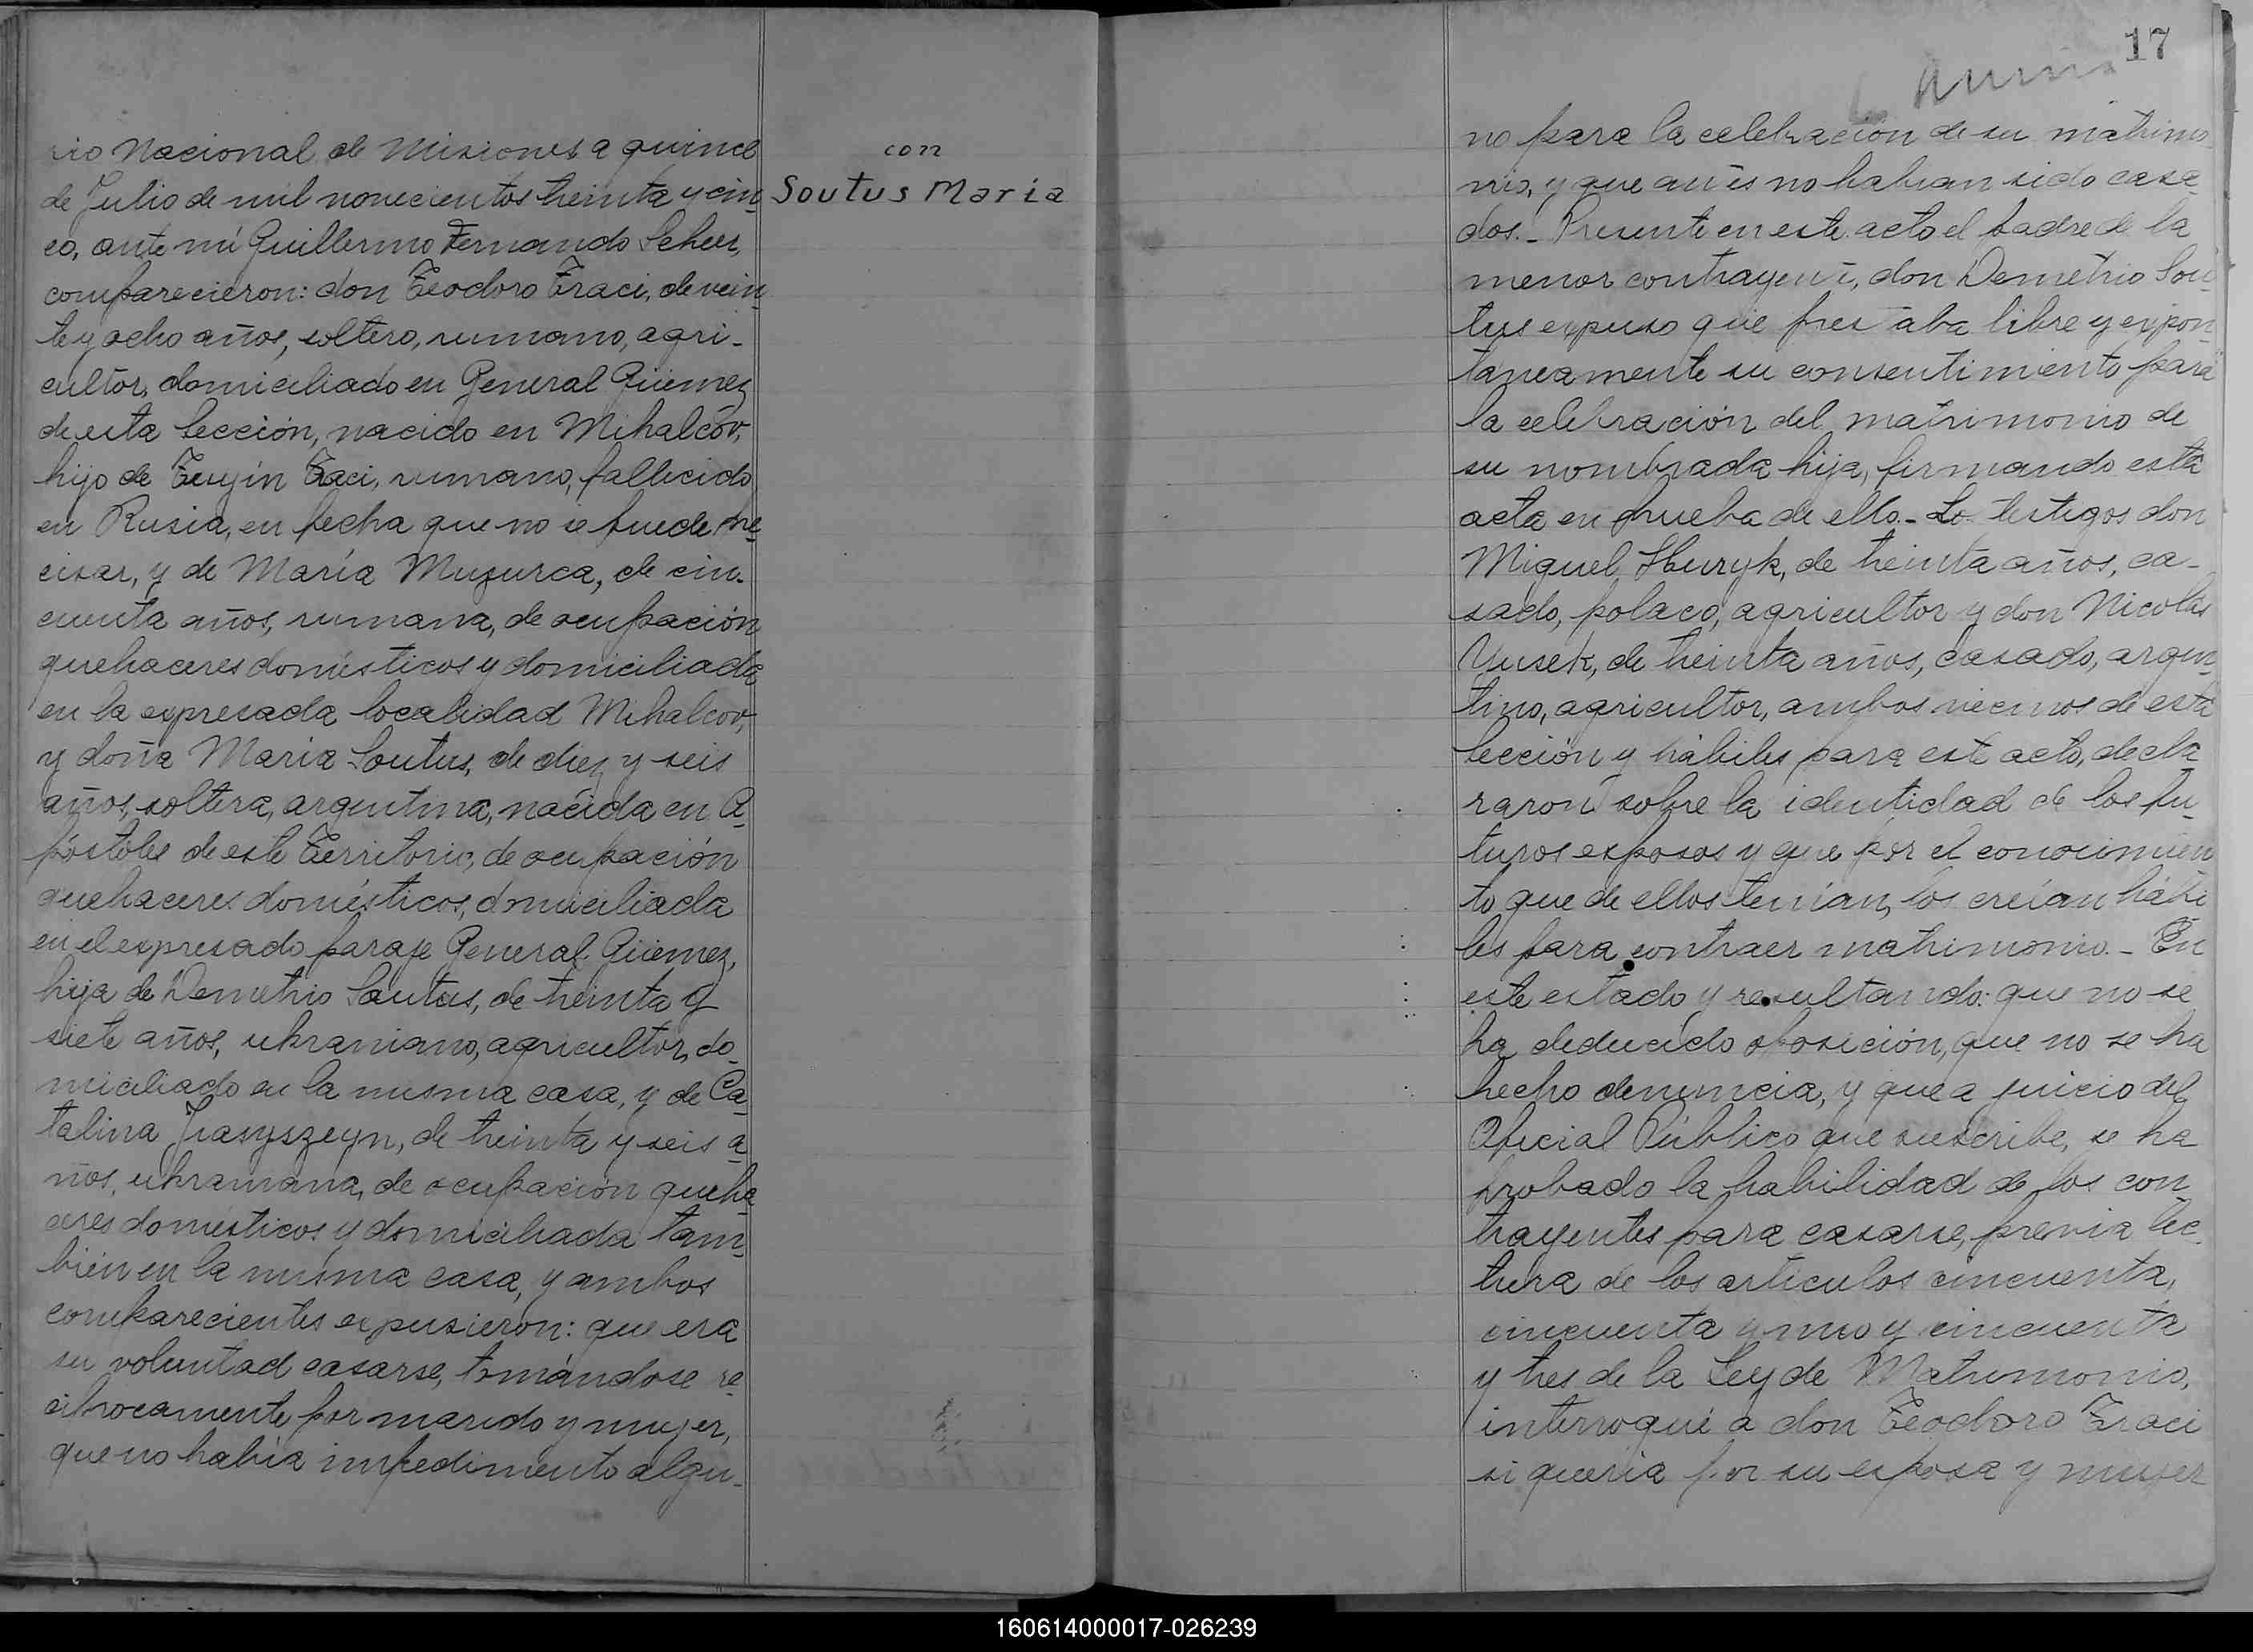 rio Nacional de Misiones a quince
de Julio de mil novecientos treinta y cin-
co, ante mí Guillermo Fernando Scheer,
comparecieron: don Teodoro Traci, de vein-
te y ocho años, soltero, rumano, agri-
cultor, domiciliado en General Güemes
de esta Sección, nacido en Mihalcov,
hijo de Traci, rumano, fallecido
en Rusia, en fecha que no se puede pre-
cisar, y de María Muzurca, de cin-
cuenta años, rumana, de ocupación
quehaceres domésticos y domiciliada
en la expresada localidad Mihalcov,
y doña Maria Soutus, de diez y seis
años, soltera, argentina, nacida en A-
póstoles de este Territorio, de ocupación
quehaceres domésticos, domiciliada
en el expresado paraje General Güemez,
hija de Demetrio Soutus, de treinta y
siete años, ukraniano, agricultor, do-
miciliado en la misma casa, y de Ca-
talina de treinta y seis a-
ños, ukraniana, de ocupación queha-
ceres domésticos y domiciliada tam-
bién en la misma casa, y ambos
comparecientes expusieron: que era
su voluntad casarse, tomándose re-
ciprocamente por marido y mujer,
que no había impedimento algu-
con
Soutus Maria
17
no para la celebración de su matrimo-
nio, y que antes no habian sido casa-
dos.- Presente en este acto el padre de la
menor contrayente, don Demetrio Sou-
tus expuso que prestaba libre y expon-
taneamente su consentimiento para
la celebración del matrimonio de
su nombrada hija, firmando esta
acta en prueba de ello.- Los testigos don
Miguel de treinta años, ca-
sado, polaco, agricultor y don Nicolás
Yusek, de treinta años, casado, argen-
tino, agricultor, ambos vecinos de esta
Sección y hábiles para este acto, decla-
raron sobre la identidad de los fu-
turos esposos y que por el conocimien-
to que de ellos tenían, los creían hábi-
les para contraer matrimonio.- En
este estado y resultando: que no se
ha deducido oposición, que no se ha
hecho denuncia, y que a juicio del
Oficial Público que suscribe, se ha
probado la habilidad de los con-
trayentes para casarse, previa lec-
tura de los artículos cincuenta,
cincuenta y uno y cincuenta
y tres de la Ley de Matrimonio,
interrogué a don Teodoro Traci
si quería por su esposa y mujer
160614000017-026239